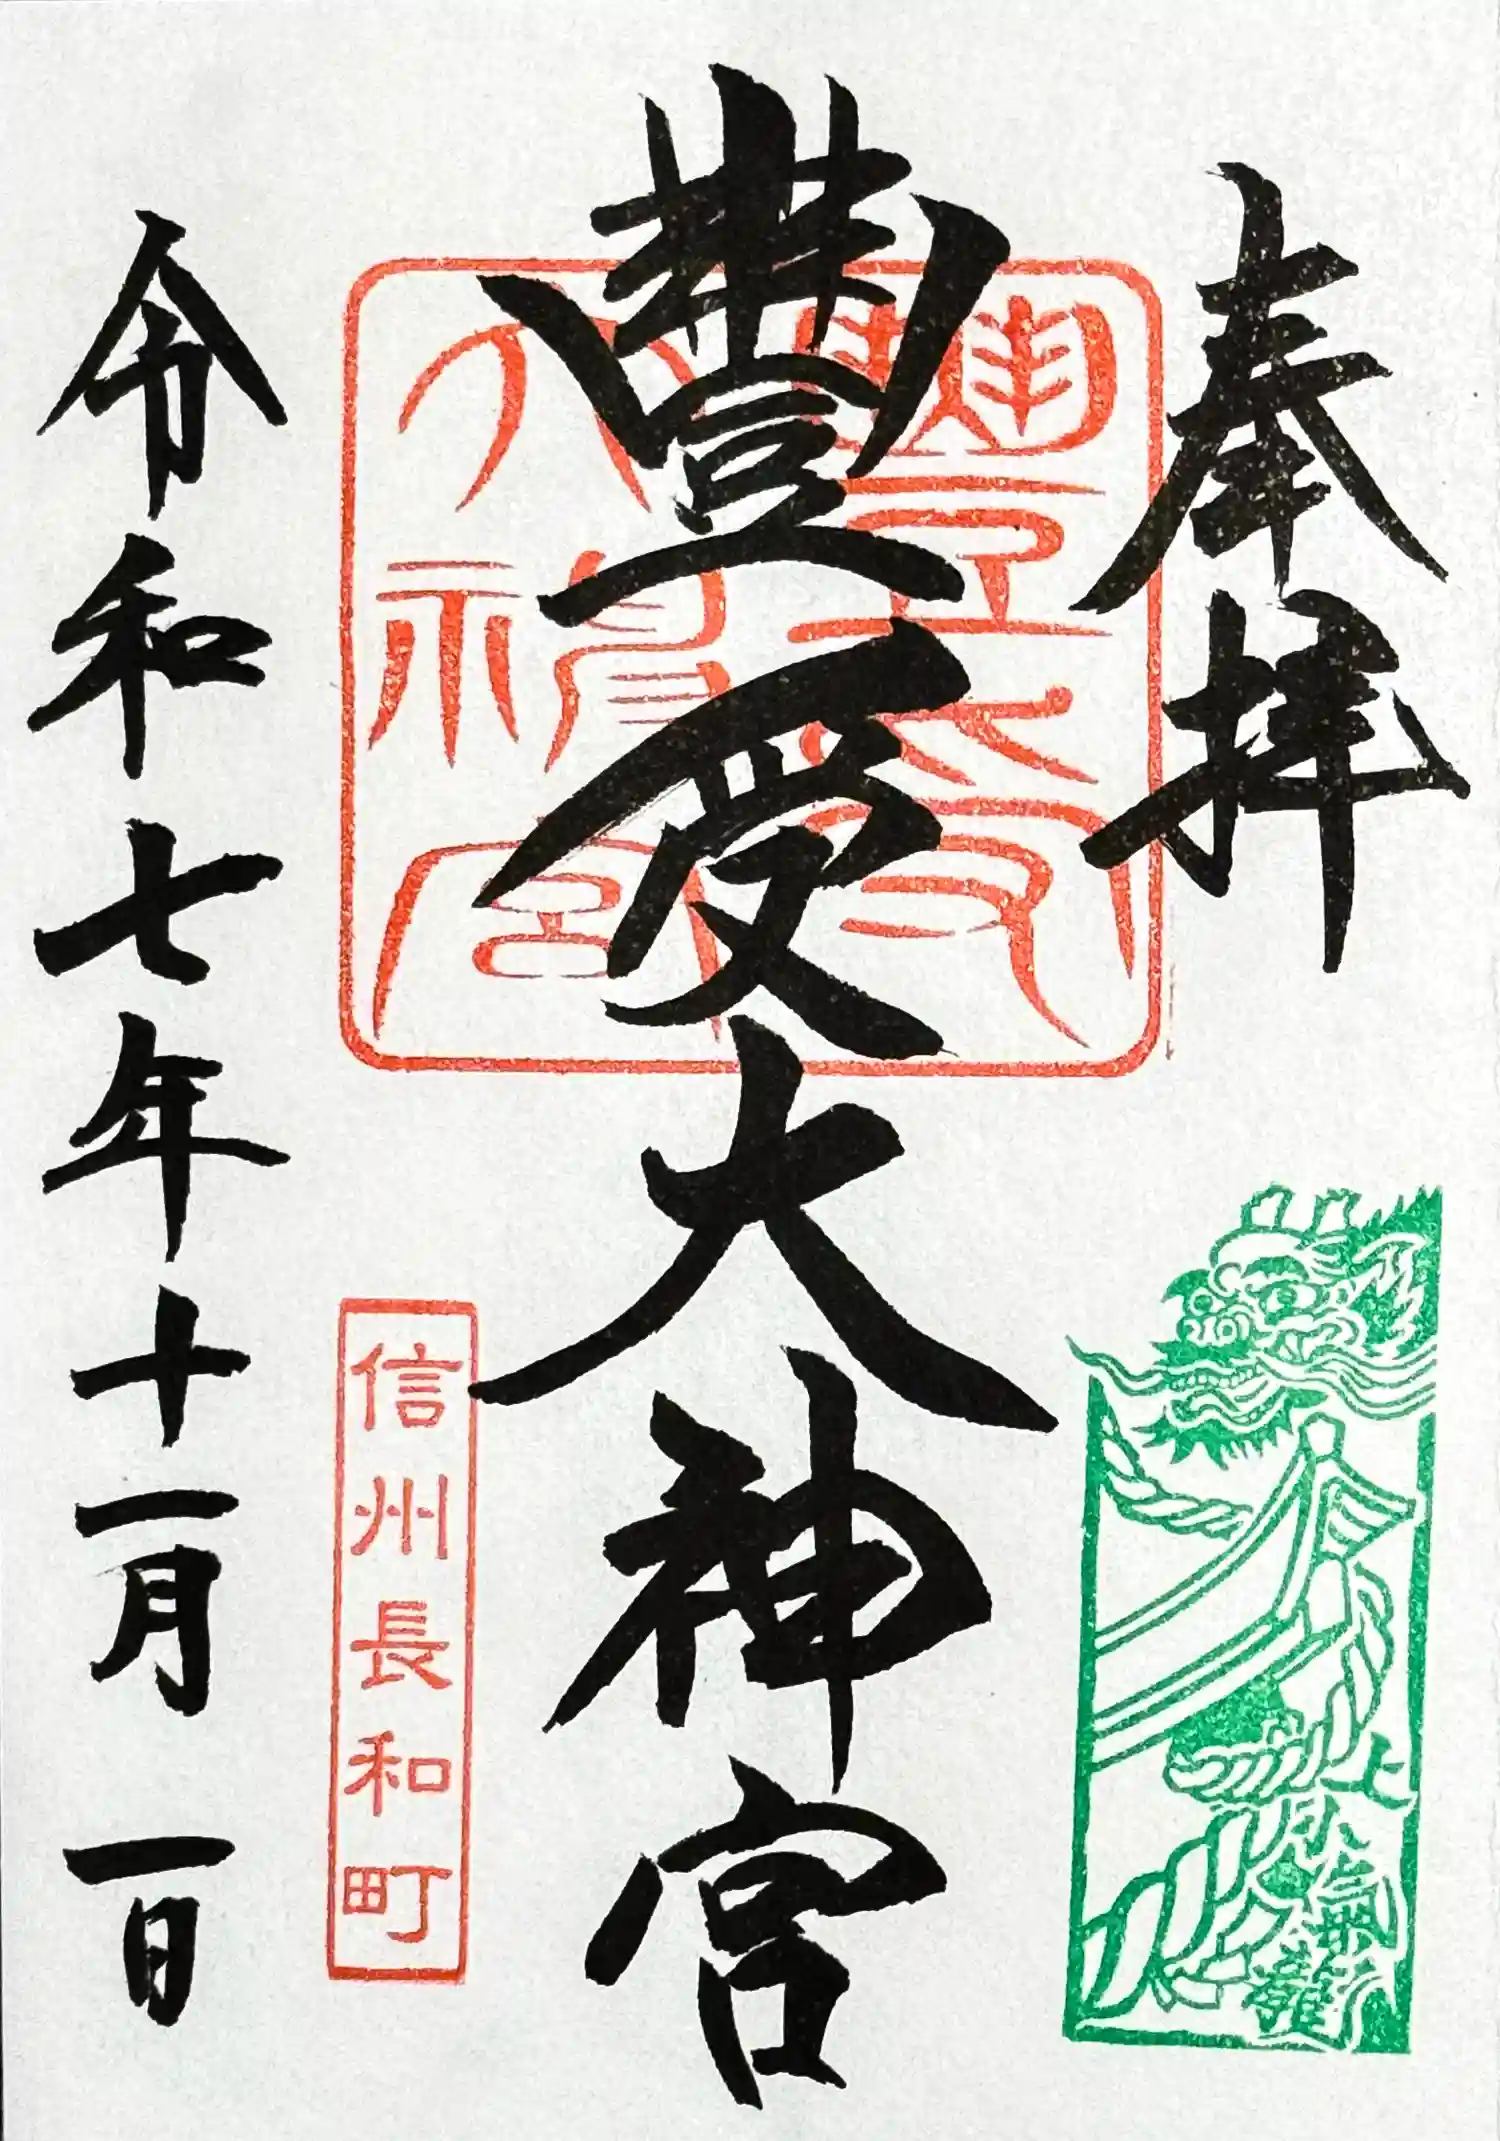 奉拝
豊受大神宮
豊受大神宮
信州長和町
令和七年十一月一日